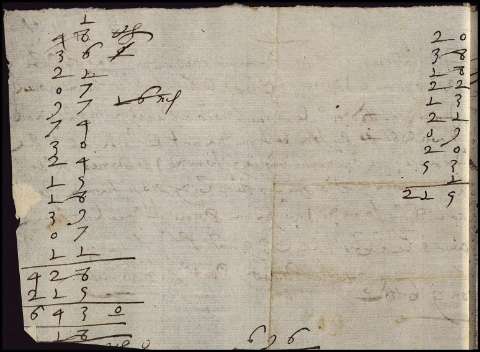 1
4 8
3 6
2 1
0 7
9 7
7 4
3 0
2 4
1 5
1 8
3 9
0 7
1 1
4 2 8
2 1 5
6 4 3 0
1 8
2 0
3 8
1 8
2 2
1 3
2 1
0 9
2 0
5 3
1
2 1 5
6 9 6